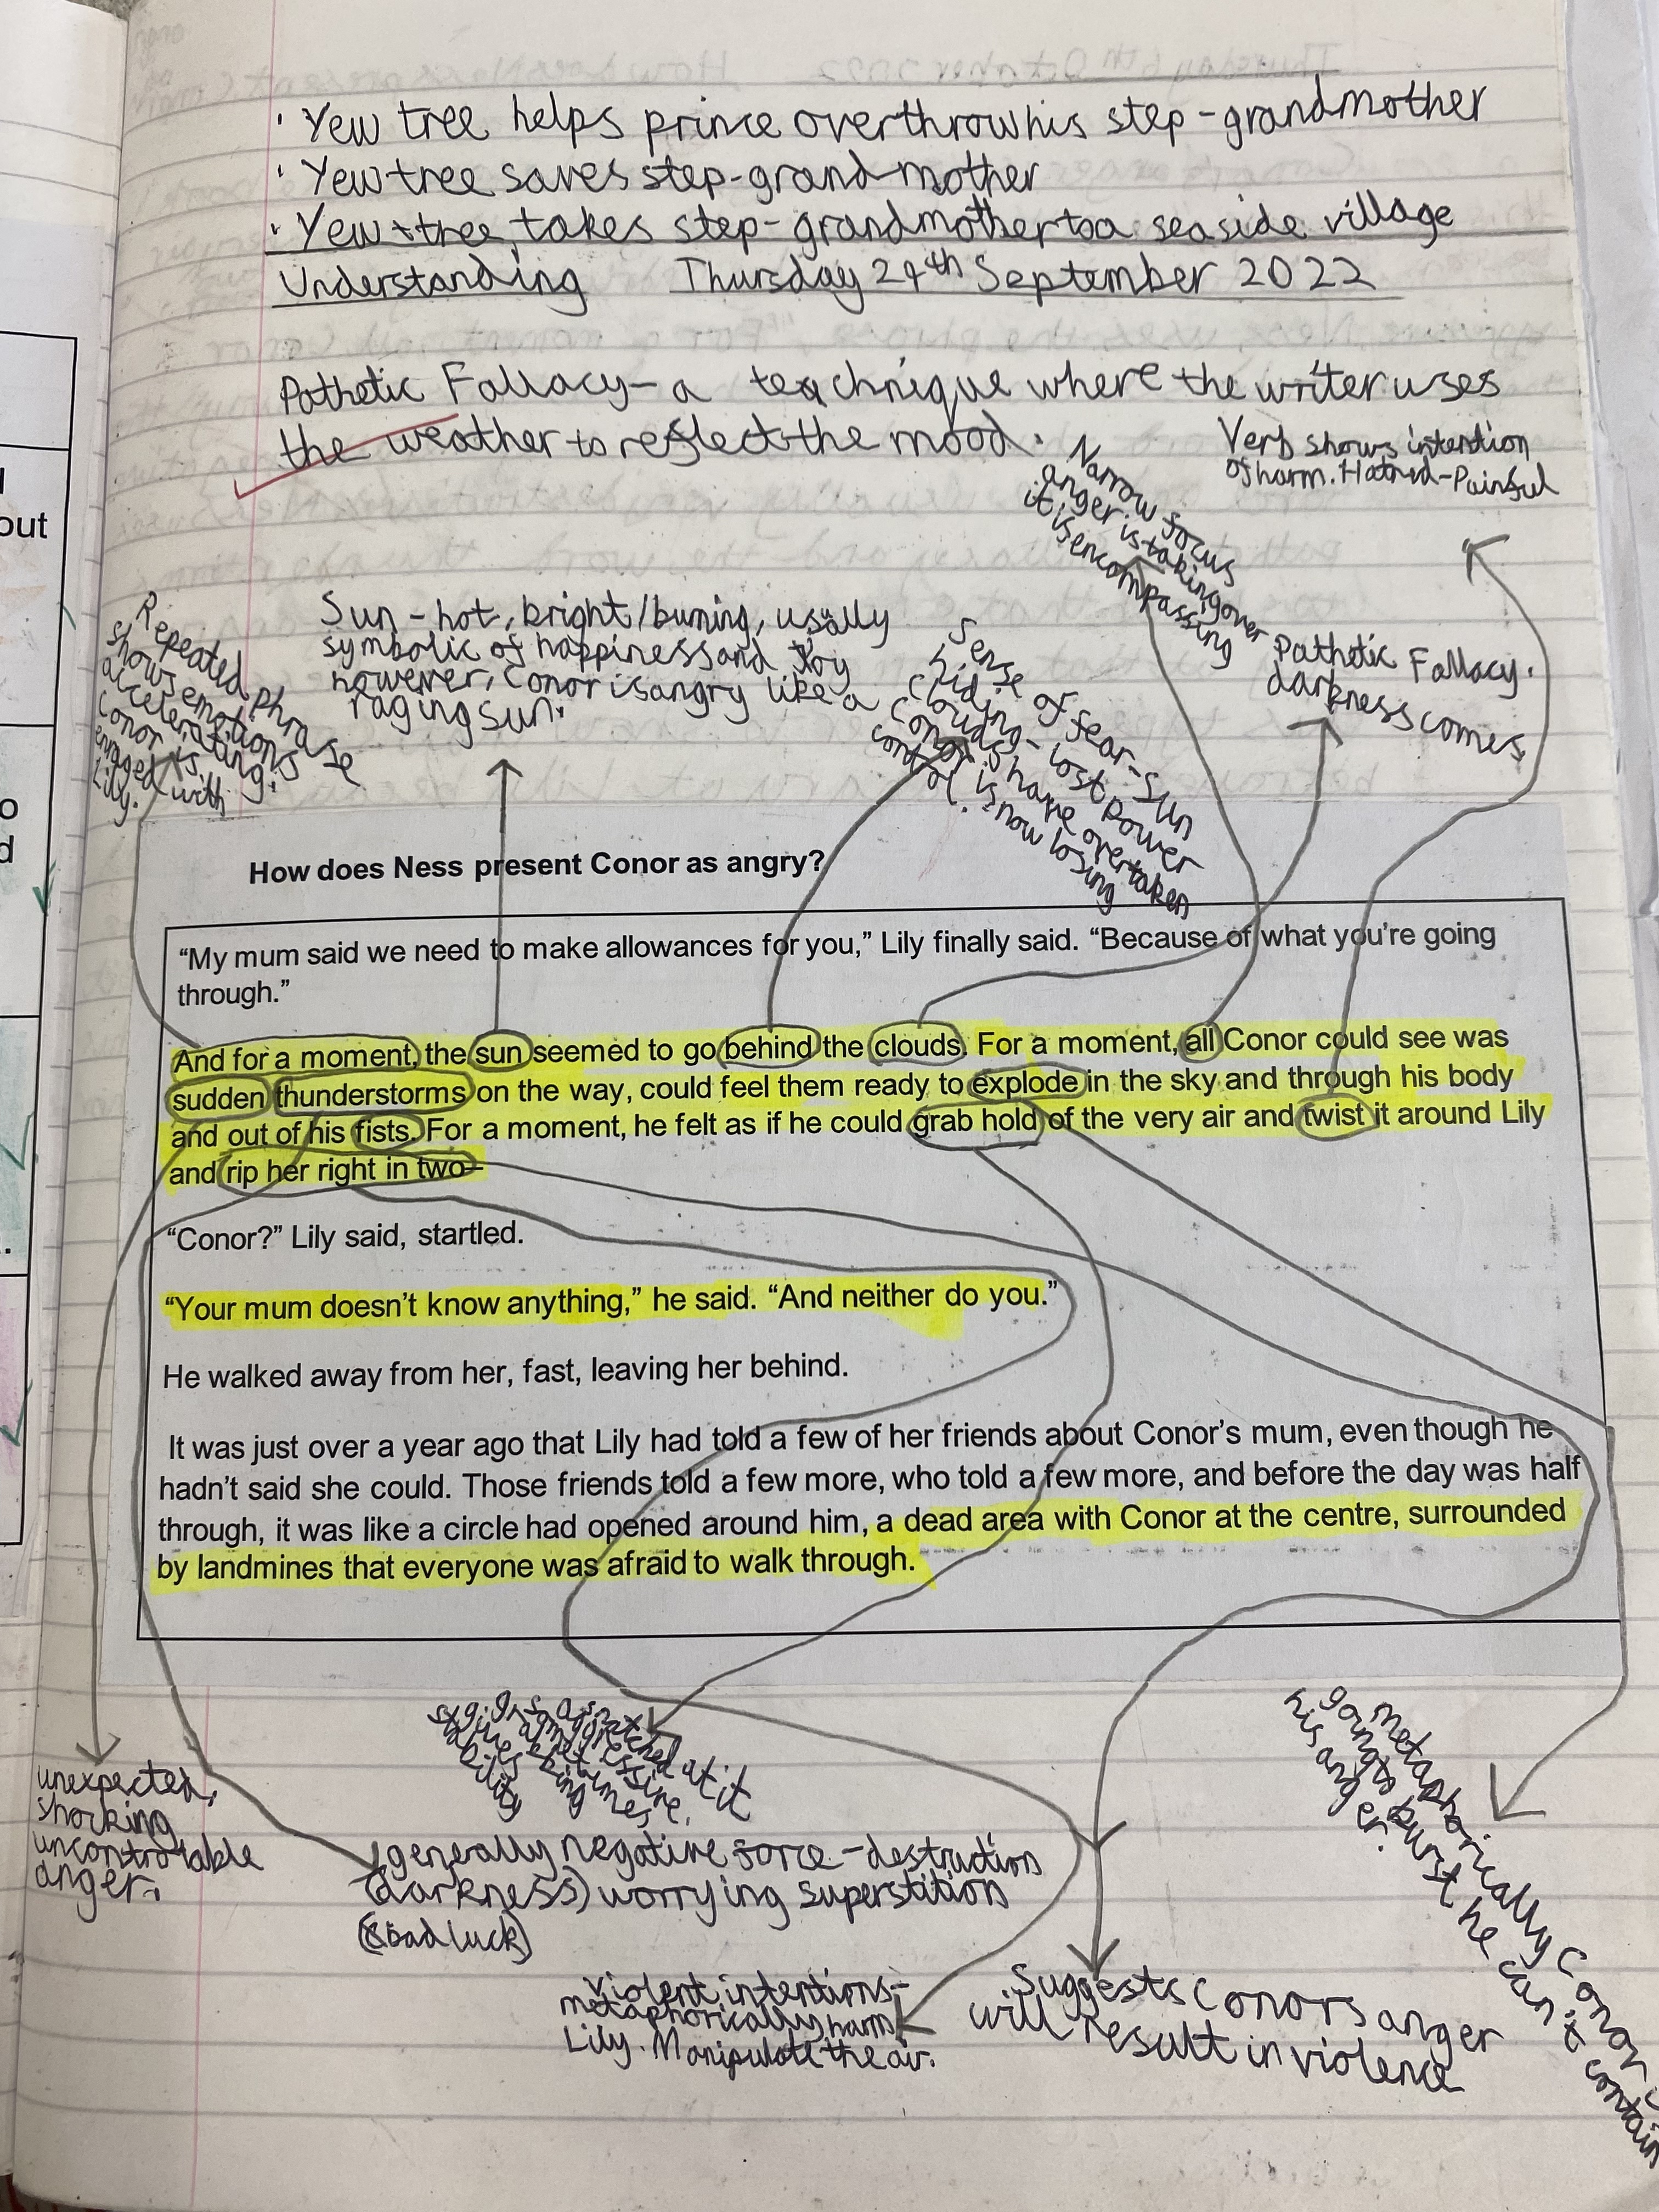 · Yew tree helps prince overthrow his step-grandmother
· Yew tree saves step-grandmother
· Yew tree takes step-grandmother to a seaside village
Understanding Thursday 29th September 2022
Pathetic Fallacy - a technique where the writer uses
the weather to reflect the mood.
Verb shows intention
of harm. Hatred - Painful
Narrow focus
anger is taking over
it is encompassing
Repeated phrase
shows emotions
accelerating.
Conor is
enraged with
Lily.
Sun - hot, bright/burning, usually
symbolic of happiness and joy
however, Conor is angry like a
raging sun.
Sense of fear - sun
hiding - lost power
clouds have overtaken
Conor is now losing
control.
Pathetic Fallacy.
darkness comes
out
How does Ness present Conor as angry?
“My mum said we need to make allowances for you,” Lily finally said. “Because of what you’re going
through.”
And for a moment, the sun seemed to go behind the clouds. For a moment, all Conor could see was
sudden thunderstorms on the way, could feel them ready to explode in the sky and through his body
and out of his fists. For a moment, he felt as if he could grab hold of the very air and twist it around Lily
and rip her right in two–
“Conor?” Lily said, startled.
“Your mum doesn’t know anything,” he said. “And neither do you.”
He walked away from her, fast, leaving her behind.
It was just over a year ago that Lily had told a few of her friends about Conor’s mum, even though he
hadn’t said she could. Those friends told a few more, who told a few more, and before the day was half
through, it was like a circle had opened around him, a dead area with Conor at the centre, surrounded
by landmines that everyone was afraid to walk through.
unexpected,
shocking
uncontrollable
anger.
snatched at it
aggressive.
generally negative force - destruction
(darkness) worrying superstition
(bad luck)
violent intentions -
metaphorically harm
Lily. Manipulate the air.
Suggests Conors anger
will result in violence
Metaphorically Conor
going to burst he can't contain
his anger.